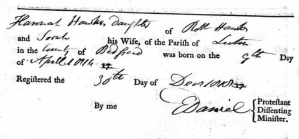 Hannah Hawkes, Daughter of Robt Hawkes
and Sarah his Wife, of the Parish of Luton
in the County of Bedford was born on the 9th Day
of April 1814
Registered the 30th Day of
By me Daniel Protestant
Dissenting
Minister.